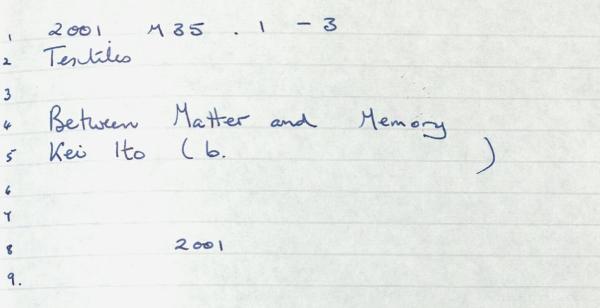 1 2001 M35 . 1 - 3
2 Textiles
3
4 Between Matter and Memory
5 Kei Ito ( b. )
6
7
8 2001
9.